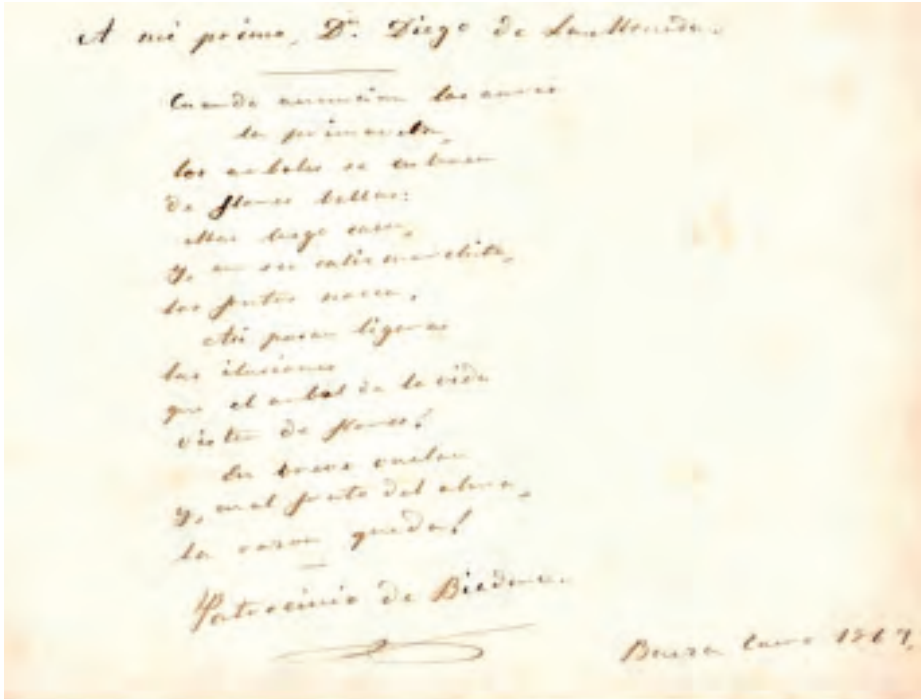 A mi primo, Dn. Diego de
Cuando anuncian las aves
la primavera,
los arboles se cubren
de flores bellas:
Mas luego caen,
y, en su caliz marchito,
los frutos nacen,
Asi pasan ligeras
las ilusiones
que el arbol de la vida
visten de flores!
En breve vuelan
y, en el fruto del alma,
la razon queda!
Patrocinio de Biedma.
Baeza Enero